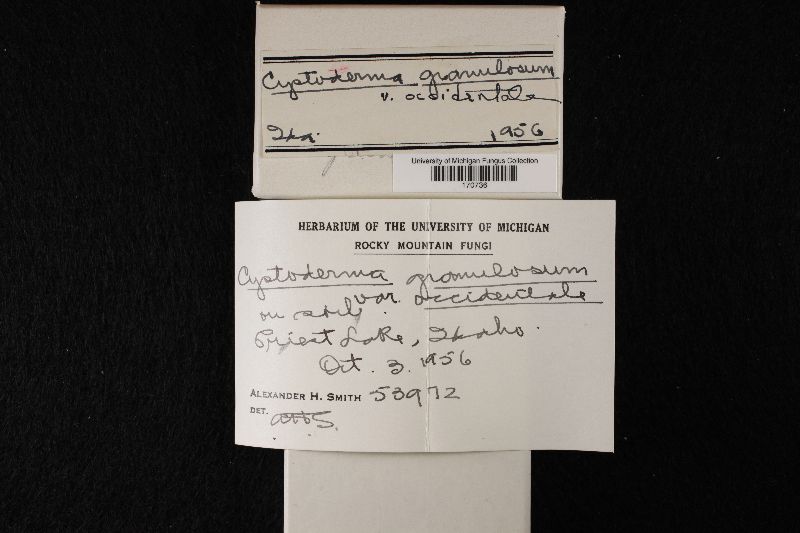 Cystoderma granulosum
v. occidentale
Ida. 1956
University of Michigan Fungus Collection
170736
HERBARIUM OF THE UNIVERSITY OF MICHIGAN
ROCKY MOUNTAIN FUNGI
Cystoderma granulosum
var. occidentale
on soil.
Priest Lake, Idaho.
Oct. 3. 1956
ALEXANDER H. SMITH 53972
DET. AHS.